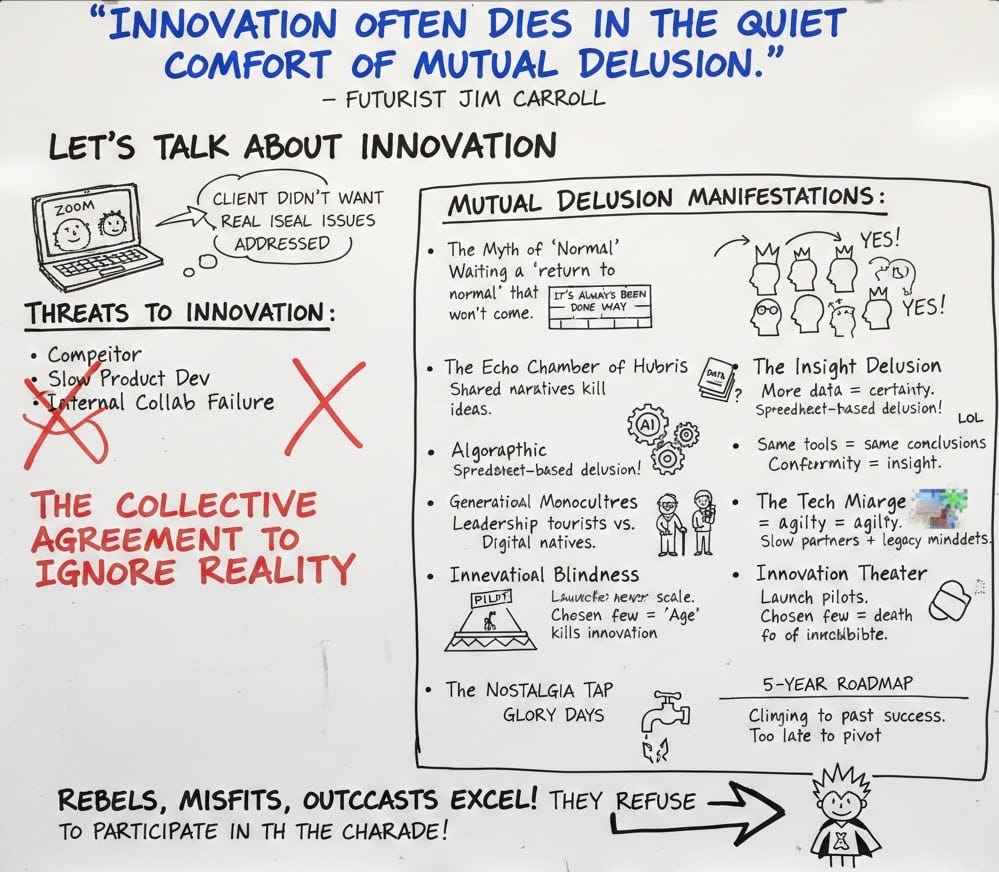 “INNOVATION OFTEN DIES IN THE QUIET
COMFORT OF MUTUAL DELUSION.”
– FUTURIST JIM CARROLL
LET'S TALK ABOUT INNOVATION
ZOOM
CLIENT DIDN'T WANT
REAL ISEAL ISSUES
ADDRESSED
THREATS TO INNOVATION:
• Compeitor
• Slow Product Dev
• Internal Collab Failure
THE COLLECTIVE
AGREEMENT TO
IGNORE REALITY
MUTUAL DELUSION MANIFESTATIONS:
• The Myth of 'Normal'
Waiting a 'return to
normal' that
won't come.
IT'S ALWAYS BEEN
DONE WAY
YES!
YES!
• The Echo Chamber of Hubris
Shared naratives kill
ideas.
DATA
?
• The Insight Delusion
More data = certainty.
Spreedheet-based delusion!
LOL
• Algorapthic
Spredsteet-based delusion!
AI
• Same tools = same conclusions
Confurmity = insight.
• Generatioal Monocultres
Leadership tourists vs.
Digital natives.
• The Tech Miarge
= agility = agilty.
Slow partners + legacy minddets.
• Innevatioal Blindness
PILOT
scale.
Chosen few = 'Age'
kills innovation
• Innovation Theater
Launch pilots.
Chosen few = death
fo of
• The NOSTALGIA TAP
GLORY DAYS
5-YEAR ROADMAP
Clinging to past success.
Too late to pivot
REBELS, MISFITS, OUTCCASTS EXCEL! THEY REFUSE
TO PARTICIPATE IN TH THE CHARADE!